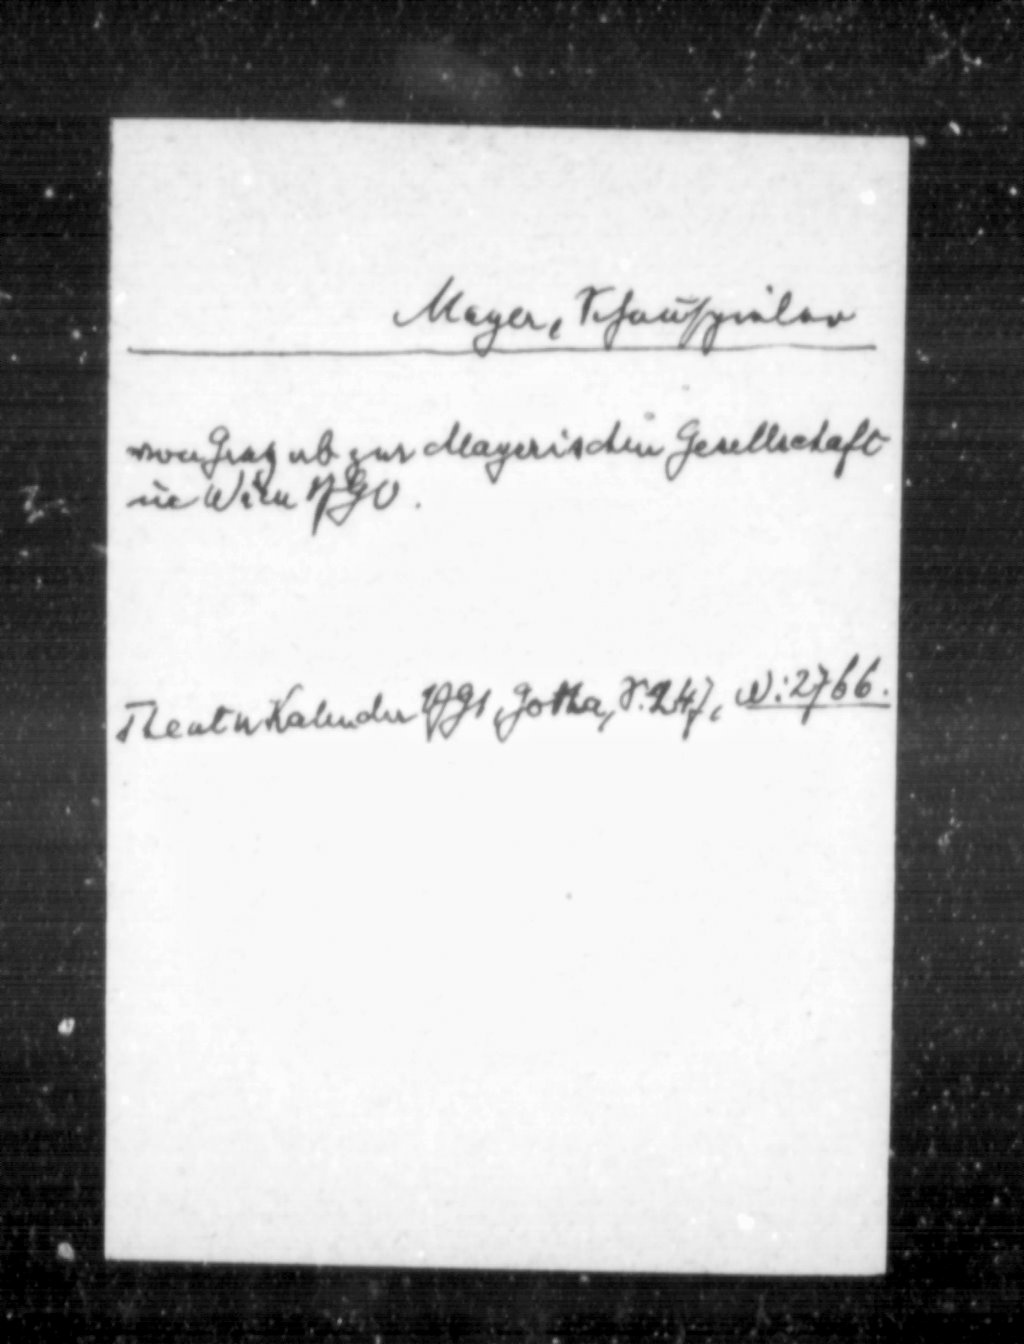 Mayer, Schauspieler
von Graz ab zur Mayerischen Gesellschaft
in Wien 1780.
Theater Kalender 1781, Gotha, S. 247, W: 2766.